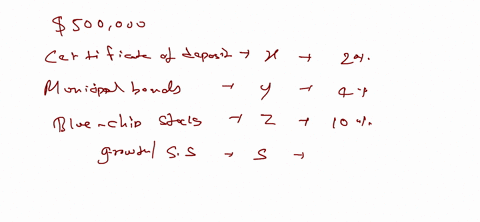 $500,000
Certificate of deposit → x → 2%.
Municipal bonds → y → 4%
Blue-chip stocks → z → 10%.
growth/ S.S → s →